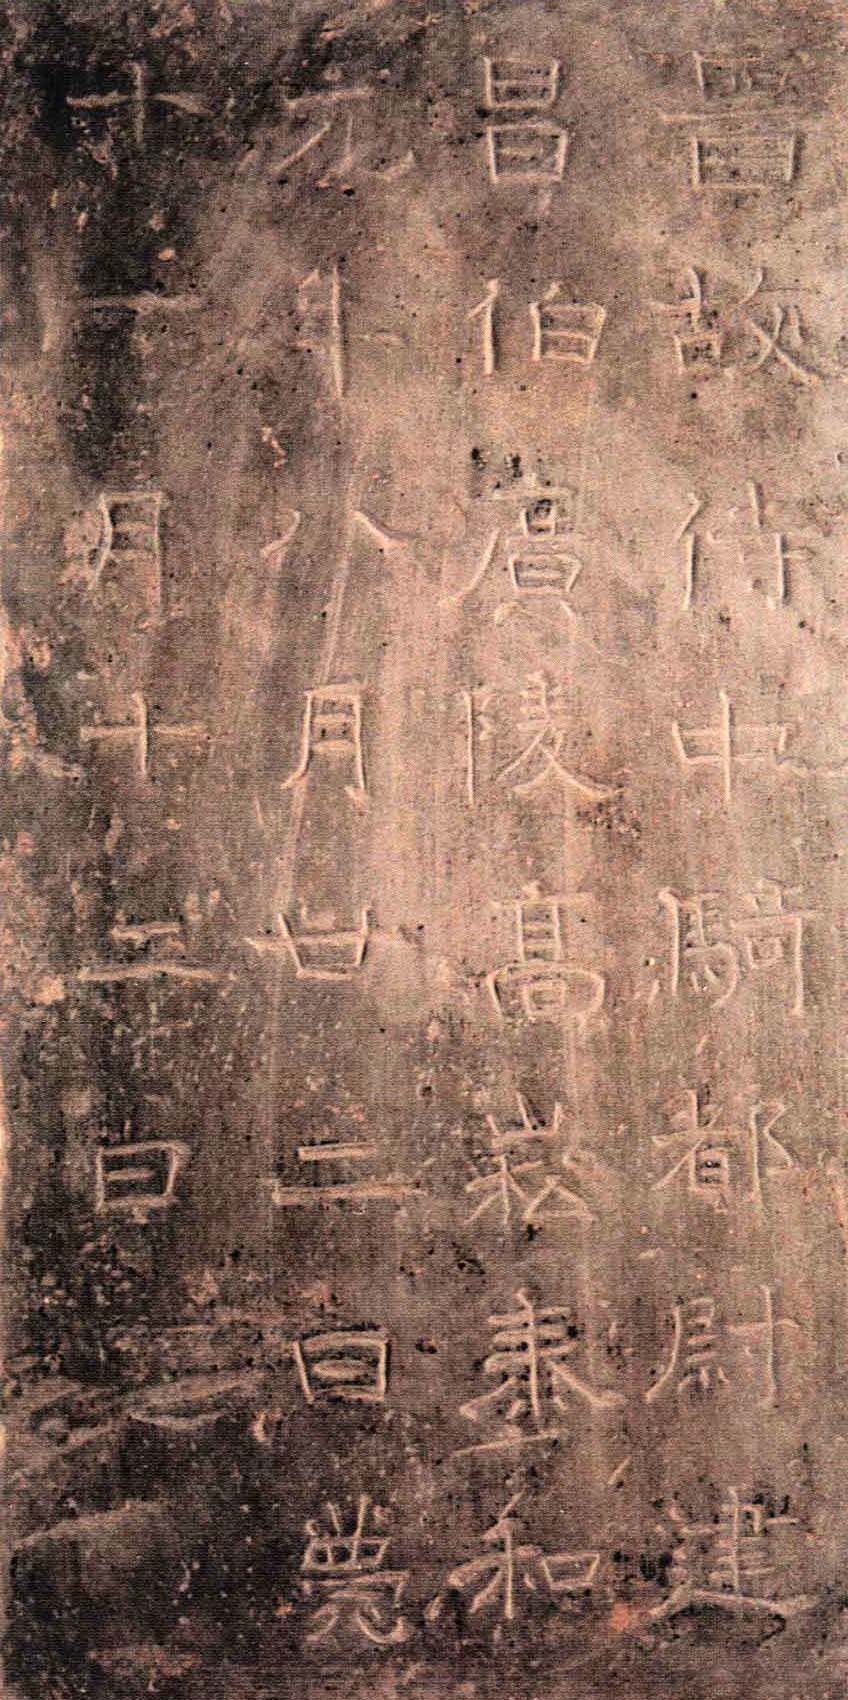 晉故侍中騎都尉建
昌伯廣陵髙崧泰和
元年八月廿二日薨
十一月十二日